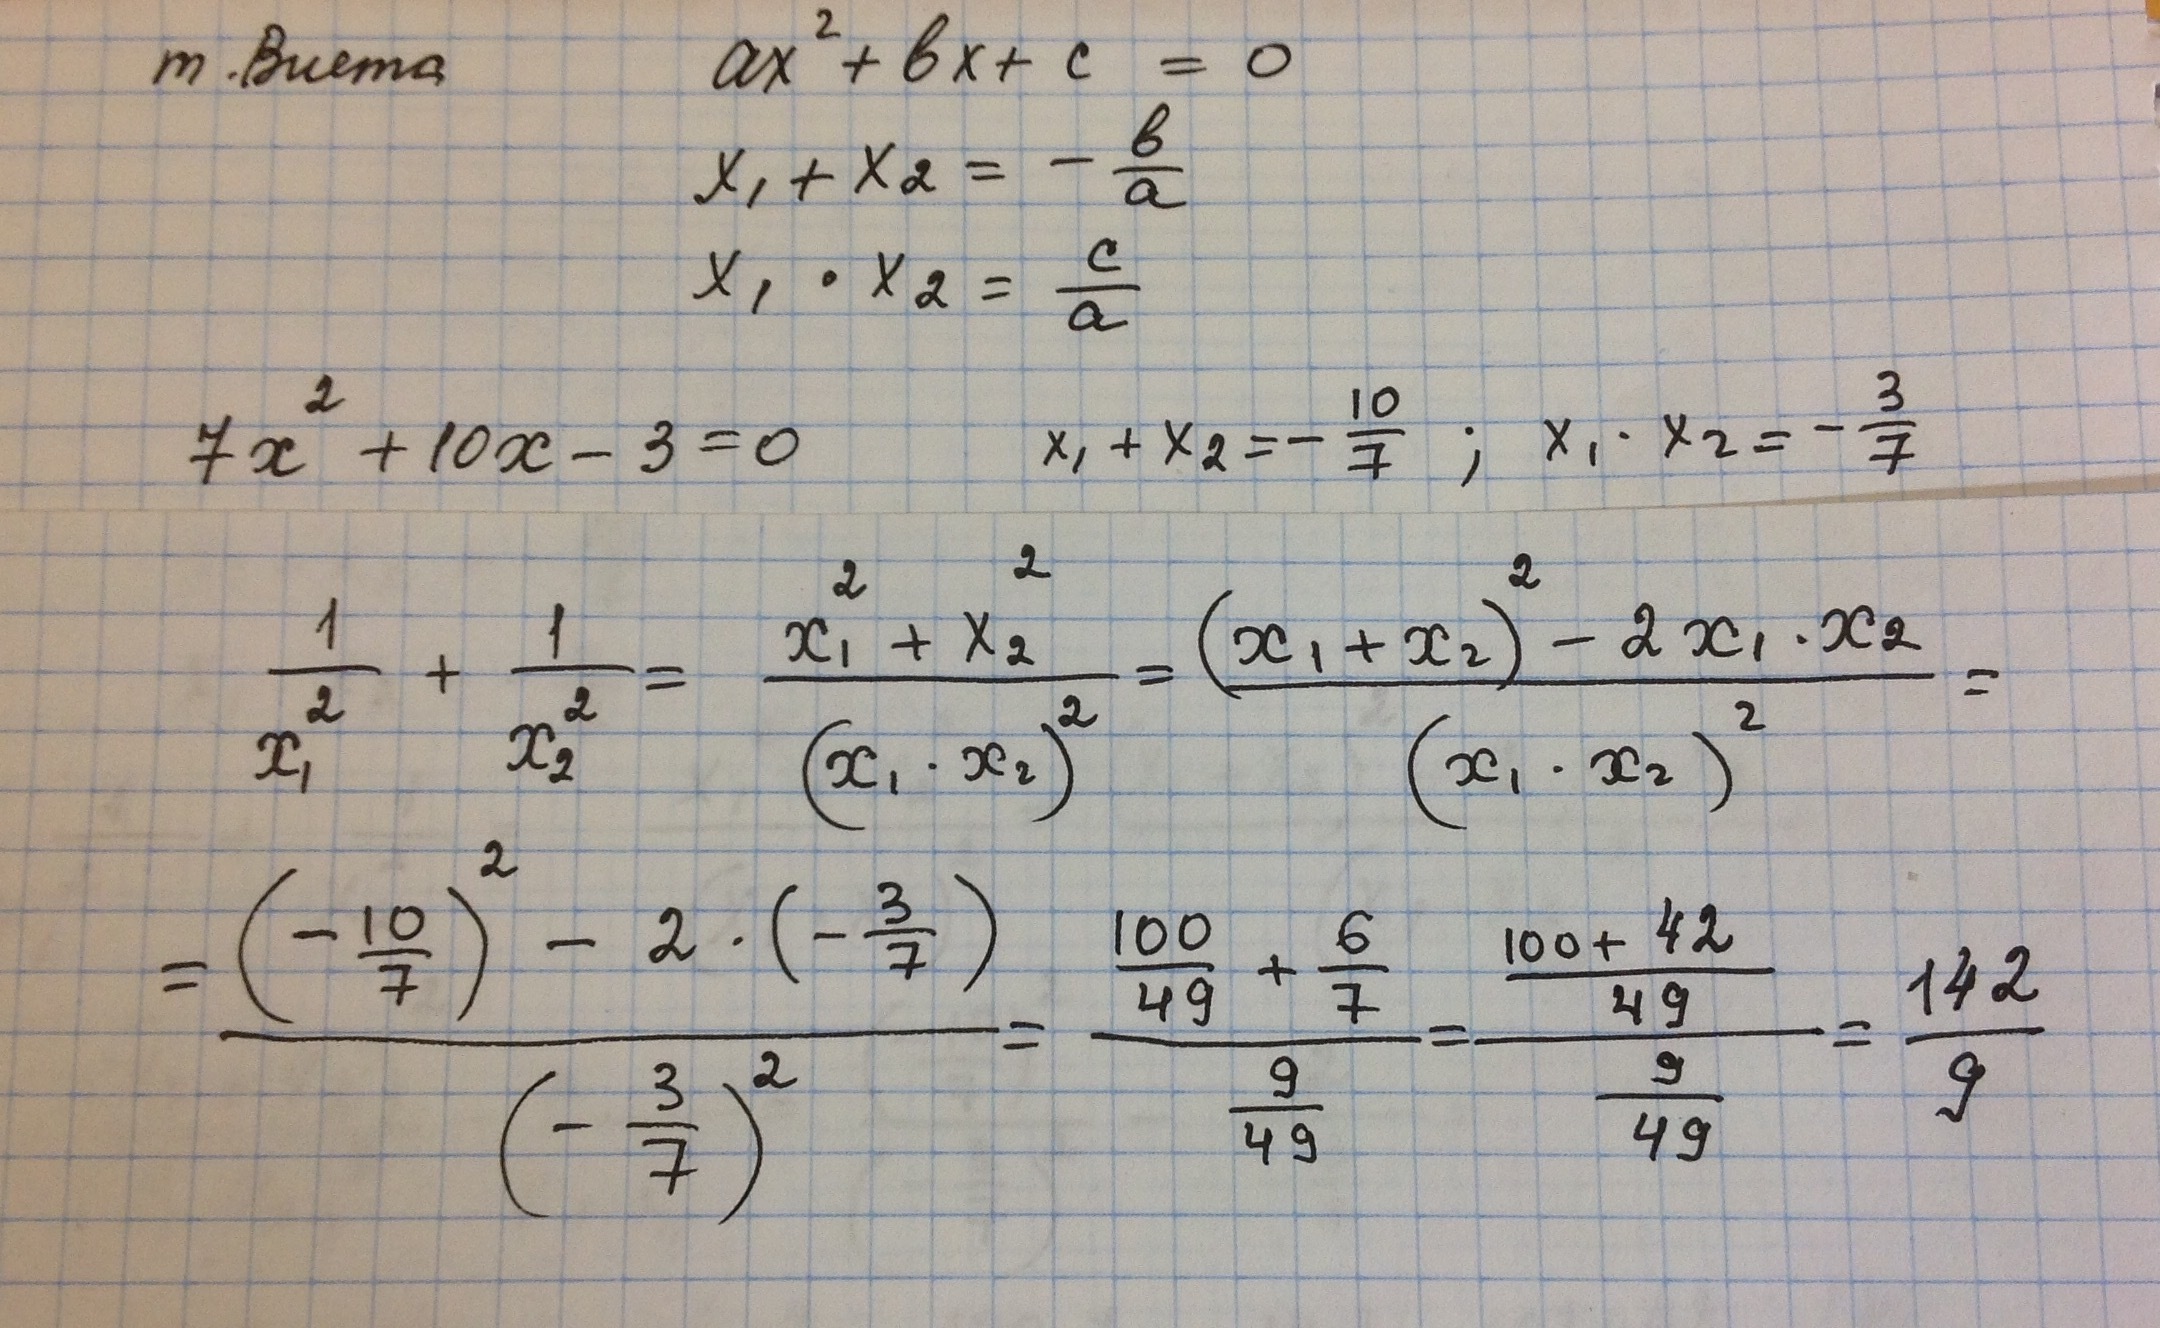 т. Виета ax² + bx + c = 0
x₁ + x₂ = - b/a
x₁ · x₂ = c/a
7x² + 10x - 3 = 0 x₁ + x₂ = - 10/7 ; x₁ · x₂ = - 3/7
1/x₁² + 1/x₂² = (x₁² + x₂²)/(x₁ · x₂)² = ((x₁ + x₂)² - 2x₁ · x₂)/(x₁ · x₂)² =
= ((- 10/7)² - 2 · (- 3/7))/(- 3/7)² = (100/49 + 6/7)/(9/49) = ((100 + 42)/49)/(9/49) = 142/9